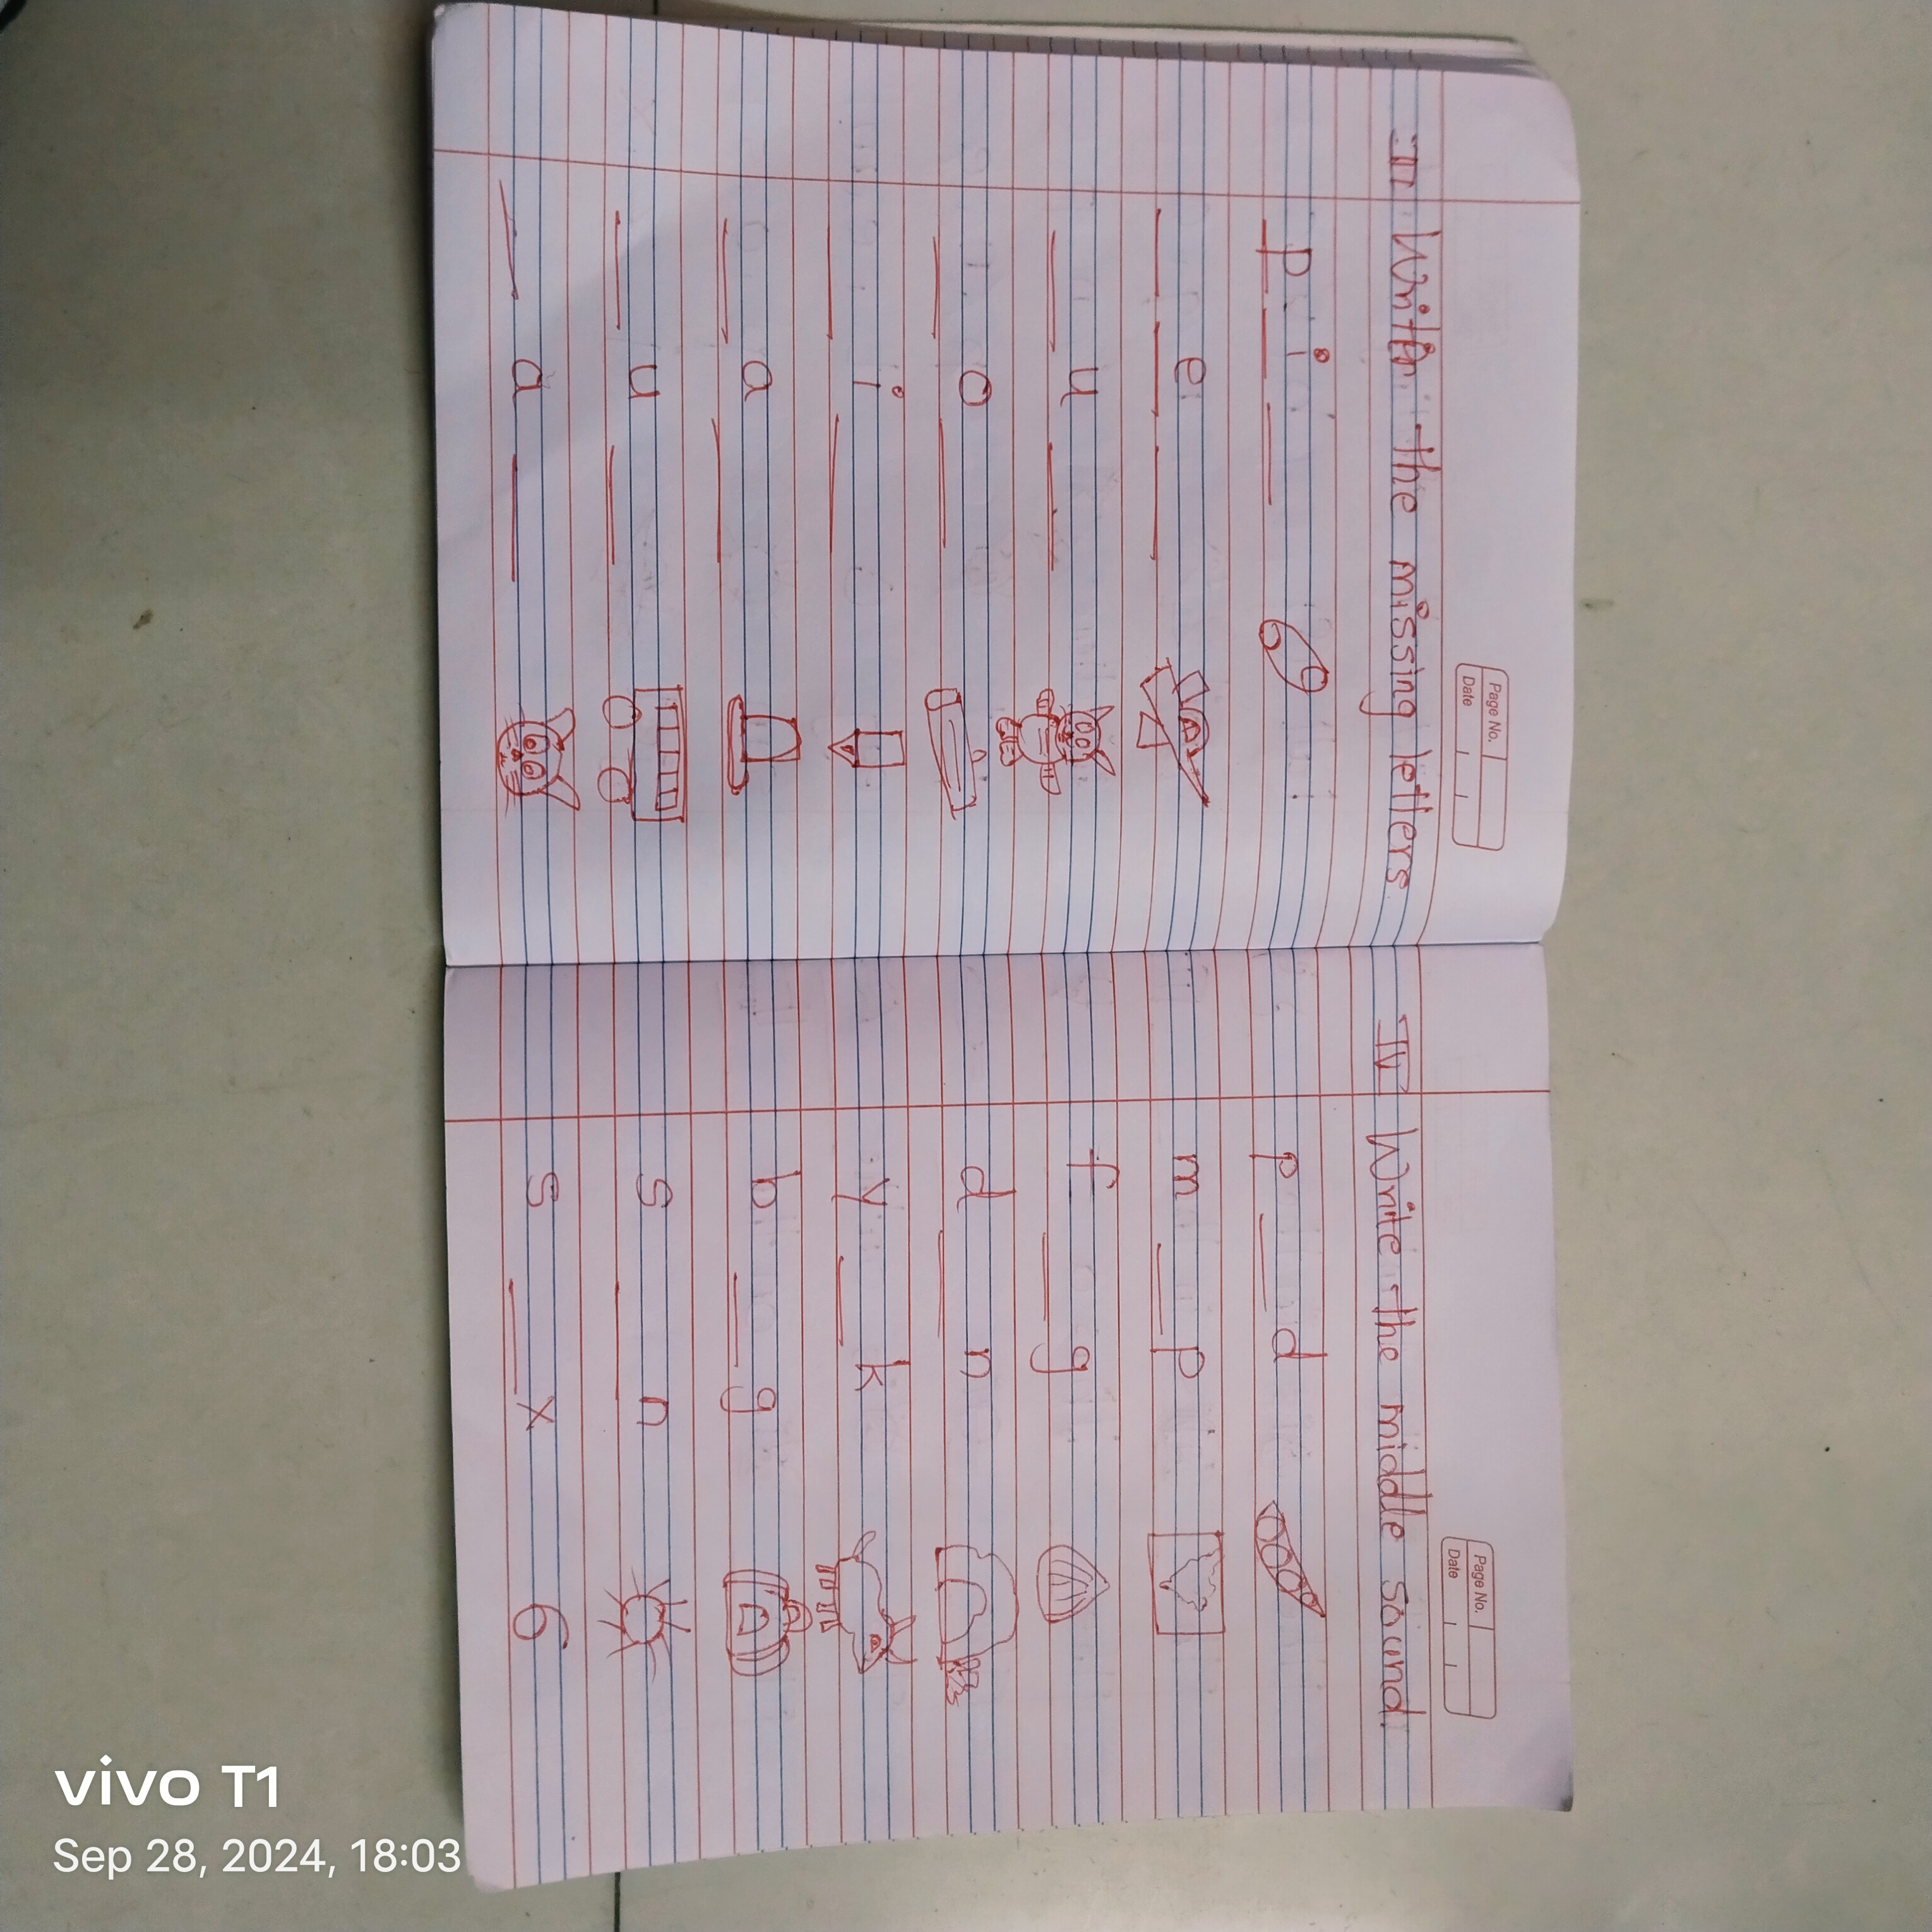 Page No.
Date
III Write the missing letters
p i __
__ e __
__ u __
__ o __
__ i __
__ a __
__ u __
__ a __
Page No.
Date
IV Write the middle sound.
p __ d
m __ p
f __ g
d __ n
y __ k
b __ g
s __ n
s __ x 6
vivo T1
Sep 28, 2024, 18:03